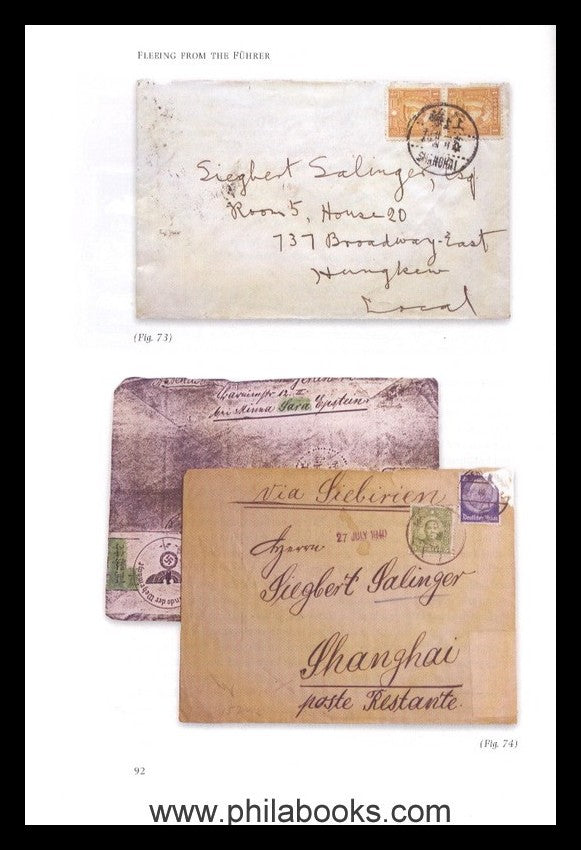 FLEEING FROM THE FÜHRER
上海
SHANGHAI
Siegbert Salinger, Esq
Room 5, House 20
737 Broadway-East
Hungkew
Local
(Fig. 73)
bei Minna Sara Epstein
via Siebirien
Deutsches Reich
27 JULY 1940
Herrn
Siegbert Salinger
Shanghai
poste Restante.
(Fig. 74)
92
www.philabooks.com